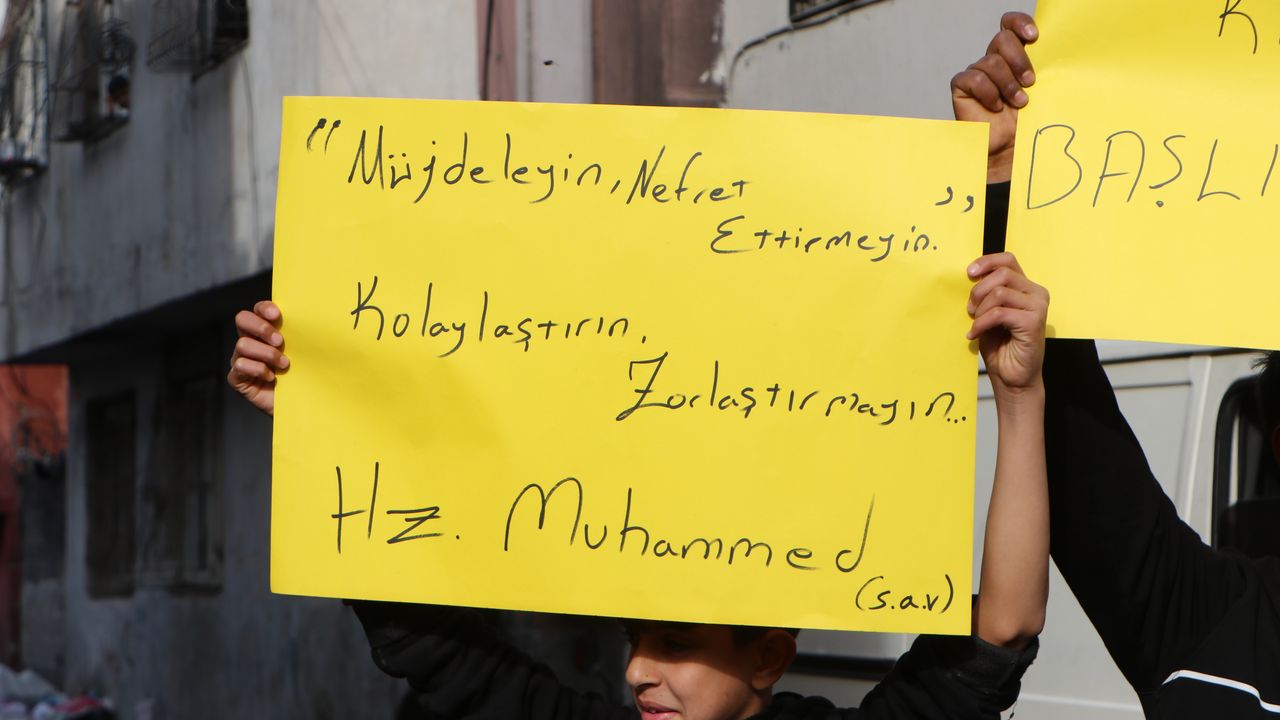 "Müjdeleyin, Nefret
Ettirmeyin.,,
Kolaylaştırın,
Zorlaştırmayın..
Hz. Muhammed
(s.a.v)
BAŞLI